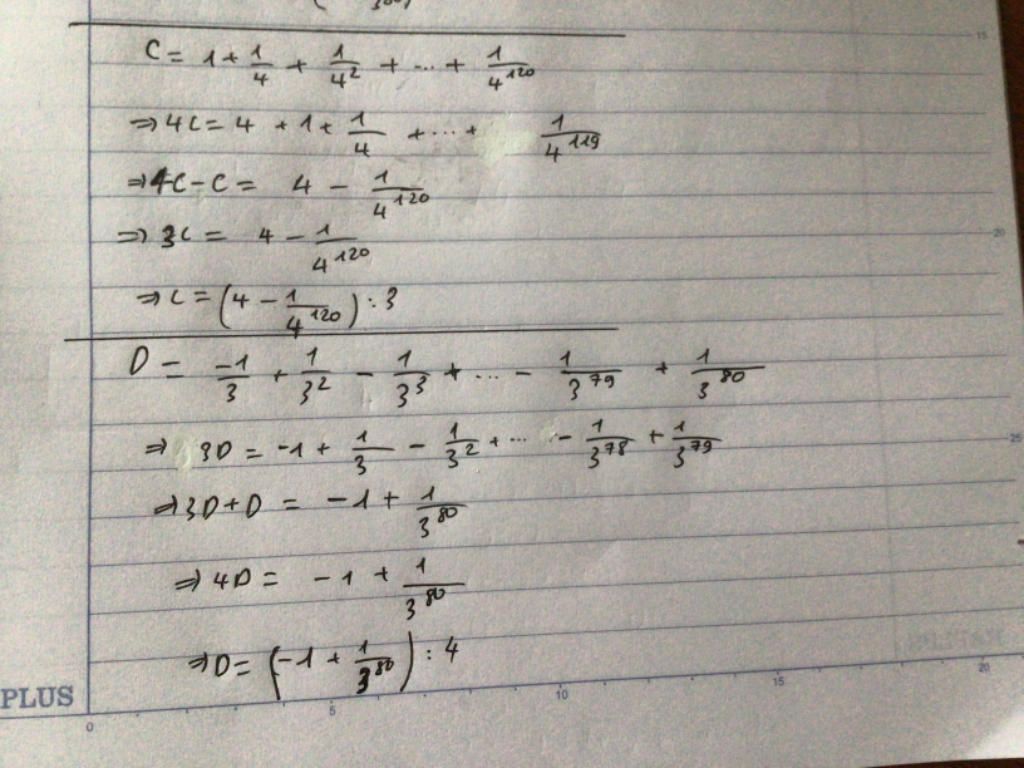 C = 1 + 1/4 + 1/4² + ... + 1/4¹²⁰
⇒ 4C = 4 + 1 + 1/4 + ... + 1/4¹¹⁹
⇒ 4C - C = 4 - 1/4¹²⁰
⇒ 3C = 4 - 1/4¹²⁰
⇒ C = (4 - 1/4¹²⁰) : 3
D = -1/3 + 1/3² - 1/3³ + ... - 1/3⁷⁹ + 1/3⁸⁰
⇒ 3D = -1 + 1/3 - 1/3² + ... - 1/3⁷⁸ + 1/3⁷⁹
⇒ 3D + D = -1 + 1/3⁸⁰
⇒ 4D = -1 + 1/3⁸⁰
⇒ D = (-1 + 1/3⁸⁰) : 4
PLUS
0 5 10 15 20
15
20
25